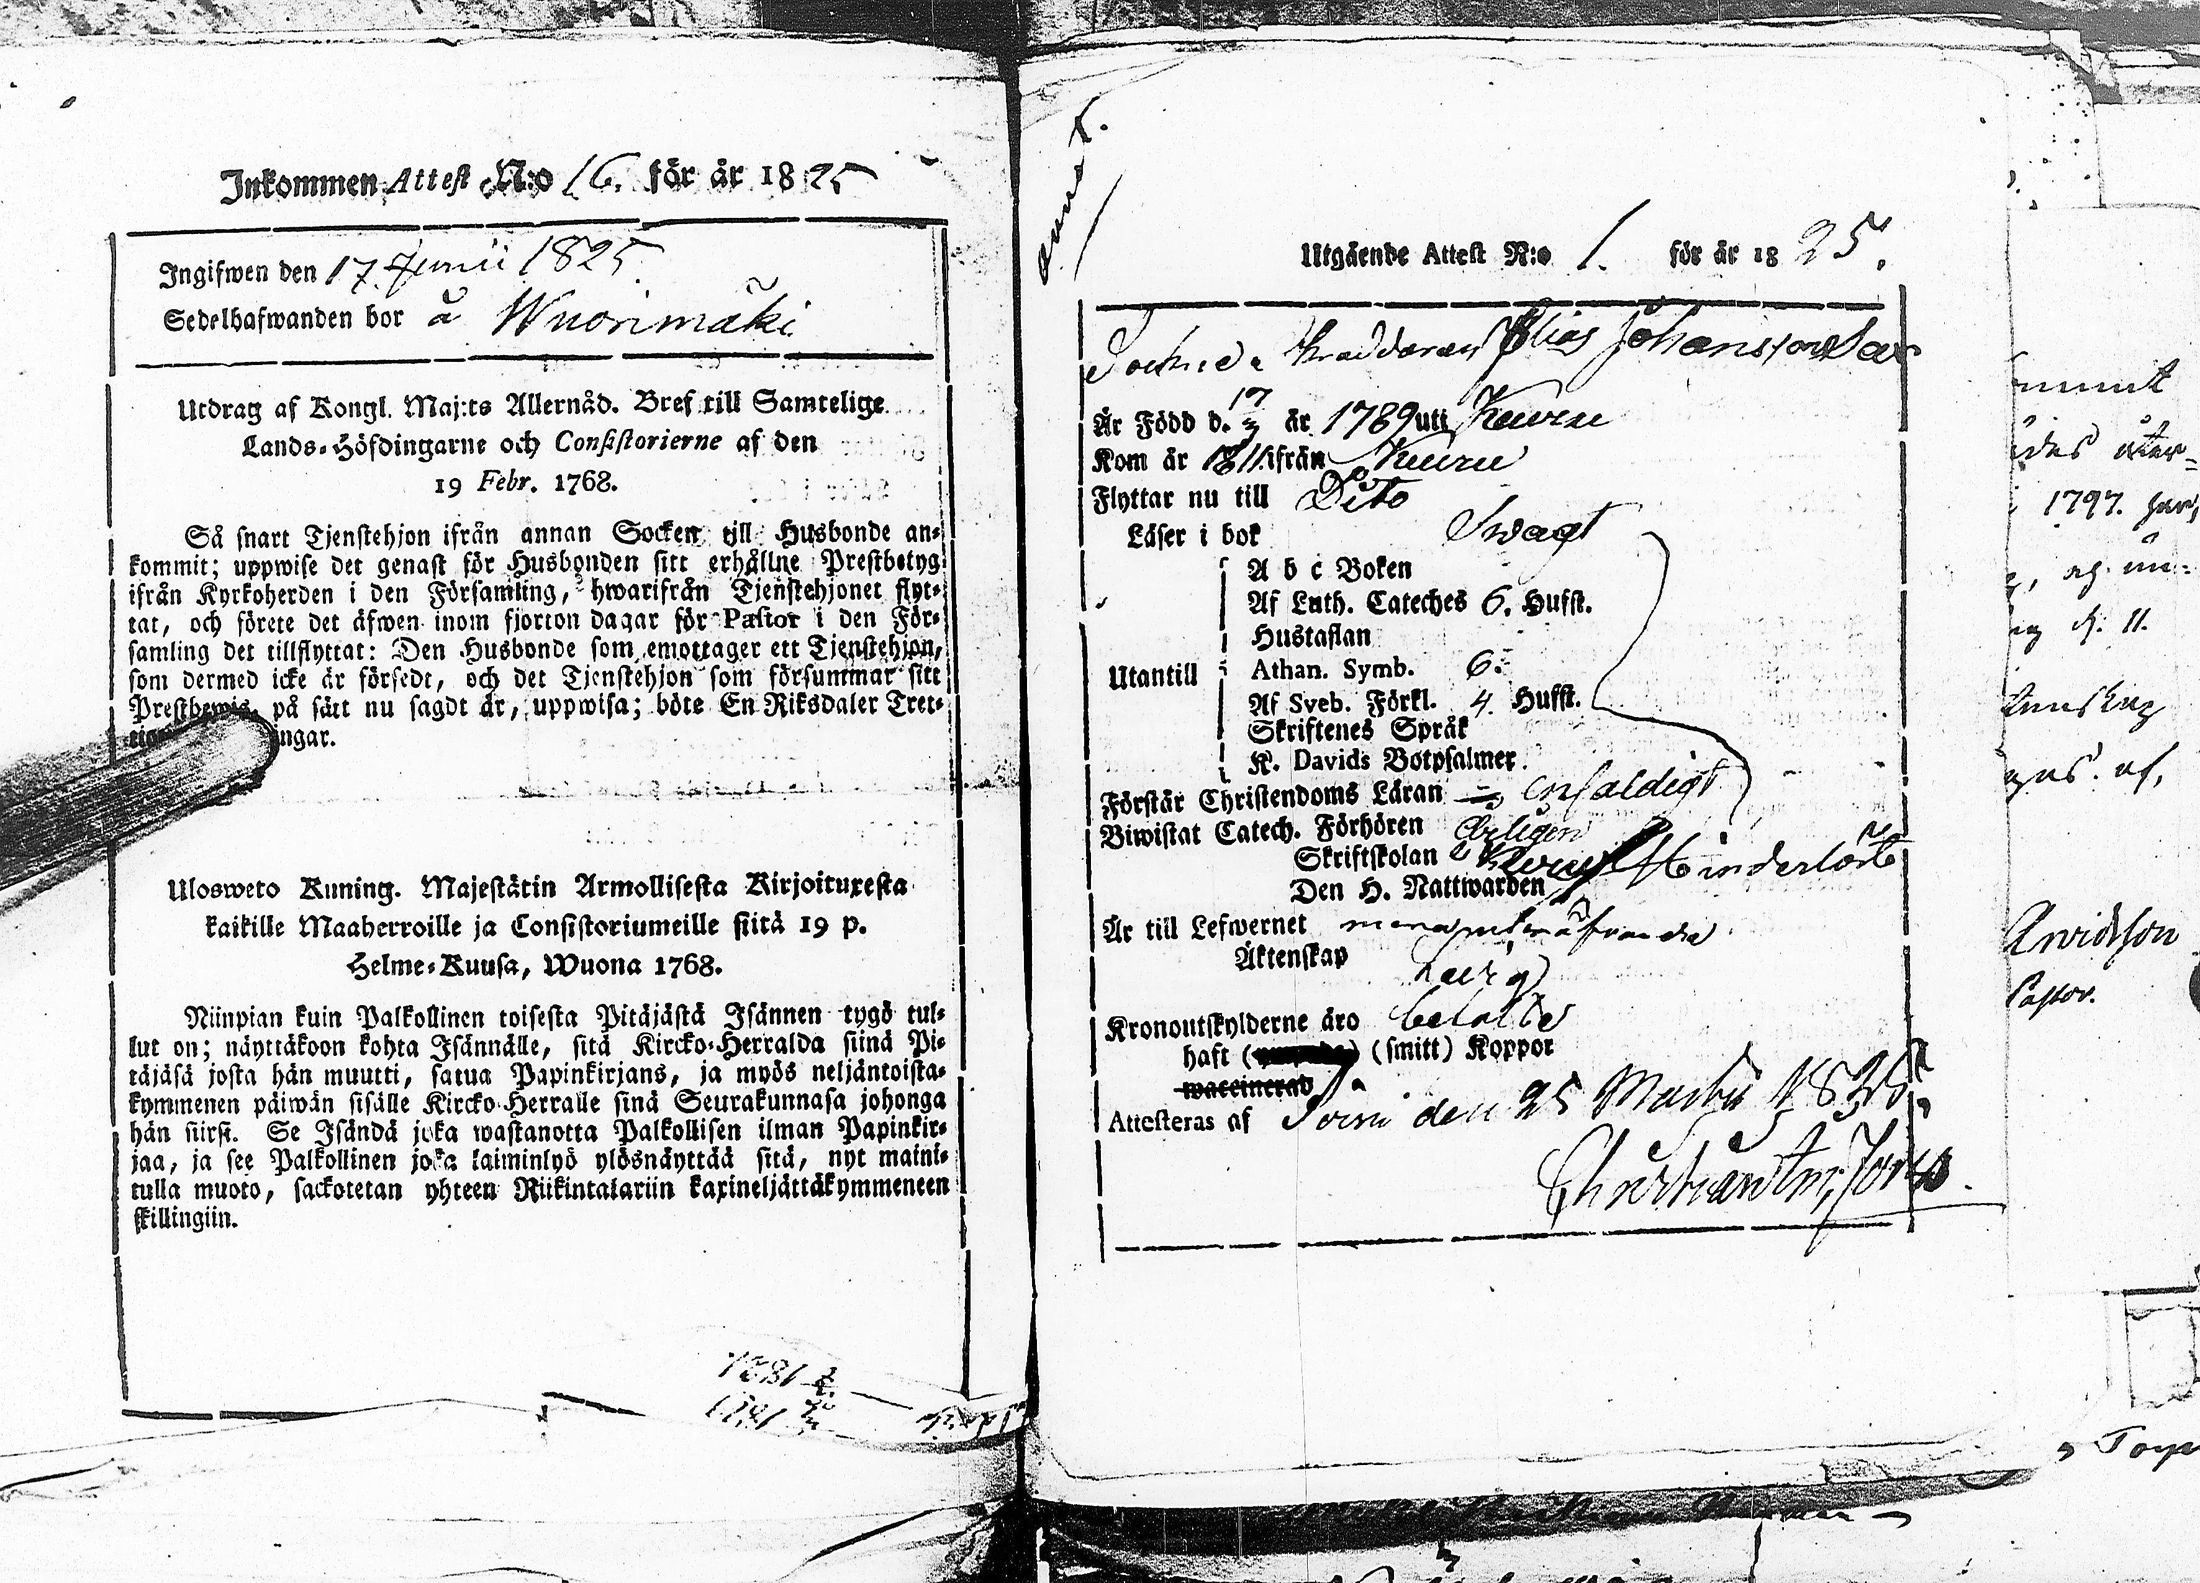 Inkommen Attest N:o 16. för år 1825
Ingifwen den 17 Junii 1825
Sedelhafwanden bor å Wuorimäki
Utdrag af Kongl. Maj:ts Allernåd. Bref till Samtelige
Lands-Höfdingarne och Consistorierne af den
19 Febr. 1768.
Så snart Tjenstehjon ifrån annan Socken till Husbonde an-
kommit; uppwise det genast för Husbonden sitt erhållne Prestbetyg
ifrån Kyrkoherden i den Församling, hwarifrån Tjenstehjonet flyt-
tat, och förete det äfwen inom fjorton dagar för Pastor i den För-
samling det tillflyttat: Den Husbonde som emottager ett Tjenstehjon,
som dermed icke är försedt, och det Tjenstehjon som försummar sitt
Prestbewis, på sätt nu sagdt är, uppwisa; böte En Riksdaler Tret-
ngar.
Ulosweto Kuning. Majestätin Armollisesta Kirjoituxesta
kaikille Maaherroille ja Consistoriumeille siitä 19 p.
Helme-Kuusa, Wuona 1768.
Niinpian kuin Palkollinen toisesta Pitäjästä Isännen tygö tul-
lut on; näyttäkoon kohta Isännälle, sitä Kircko-Herralda siinä Pi-
täjäsä josta hän muutti, satua Papinkirjans, ja myös neljäntoista-
kymmenen päiwän sisälle Kircko-Herralle sinä Seurakunnasa johonga
hän siirsi. Se Isändä joka wastanotta Palkollisen ilman Papinkir-
jaa, ja see Palkollinen joka laiminlyö ylösnäyttää sitä, nyt maini-
tulla muoto, sackotetan yhteen Riikintalariin kaxineljättäkymmeneen
skillingiin.
Utgående Attest N:o 1. för år 1825.
Sockne Skräddaren Elias Johansson
Är Född d. 17 år 1789 uti Keuru
Kom år 1811 ifrån Keuru
Flyttar nu till Dito
Läser i bok Swagt
A b c Boken
Af Luth. Cateches 6. Hufst.
Hustaflan
Utantill Athan. Symb. 6.
Af Sveb. Förkl. 4. Hufst.
Skriftenes Språk
K. Davids Botpsalmer
Förstår Christendoms Läran enfaldigt
Biwistat Catech. Förhören årligen
Skriftskolan
Den H. Nattwarden Hinderlöst
Är till Lefwernet
Äktenskap ledig
Kronoutskylderne äro betalte
haft (smitt) Koppor
waccinerad
Attesteras af den 25 Martii 1825
1797.
K. 11.
Arvidson
Pastor.